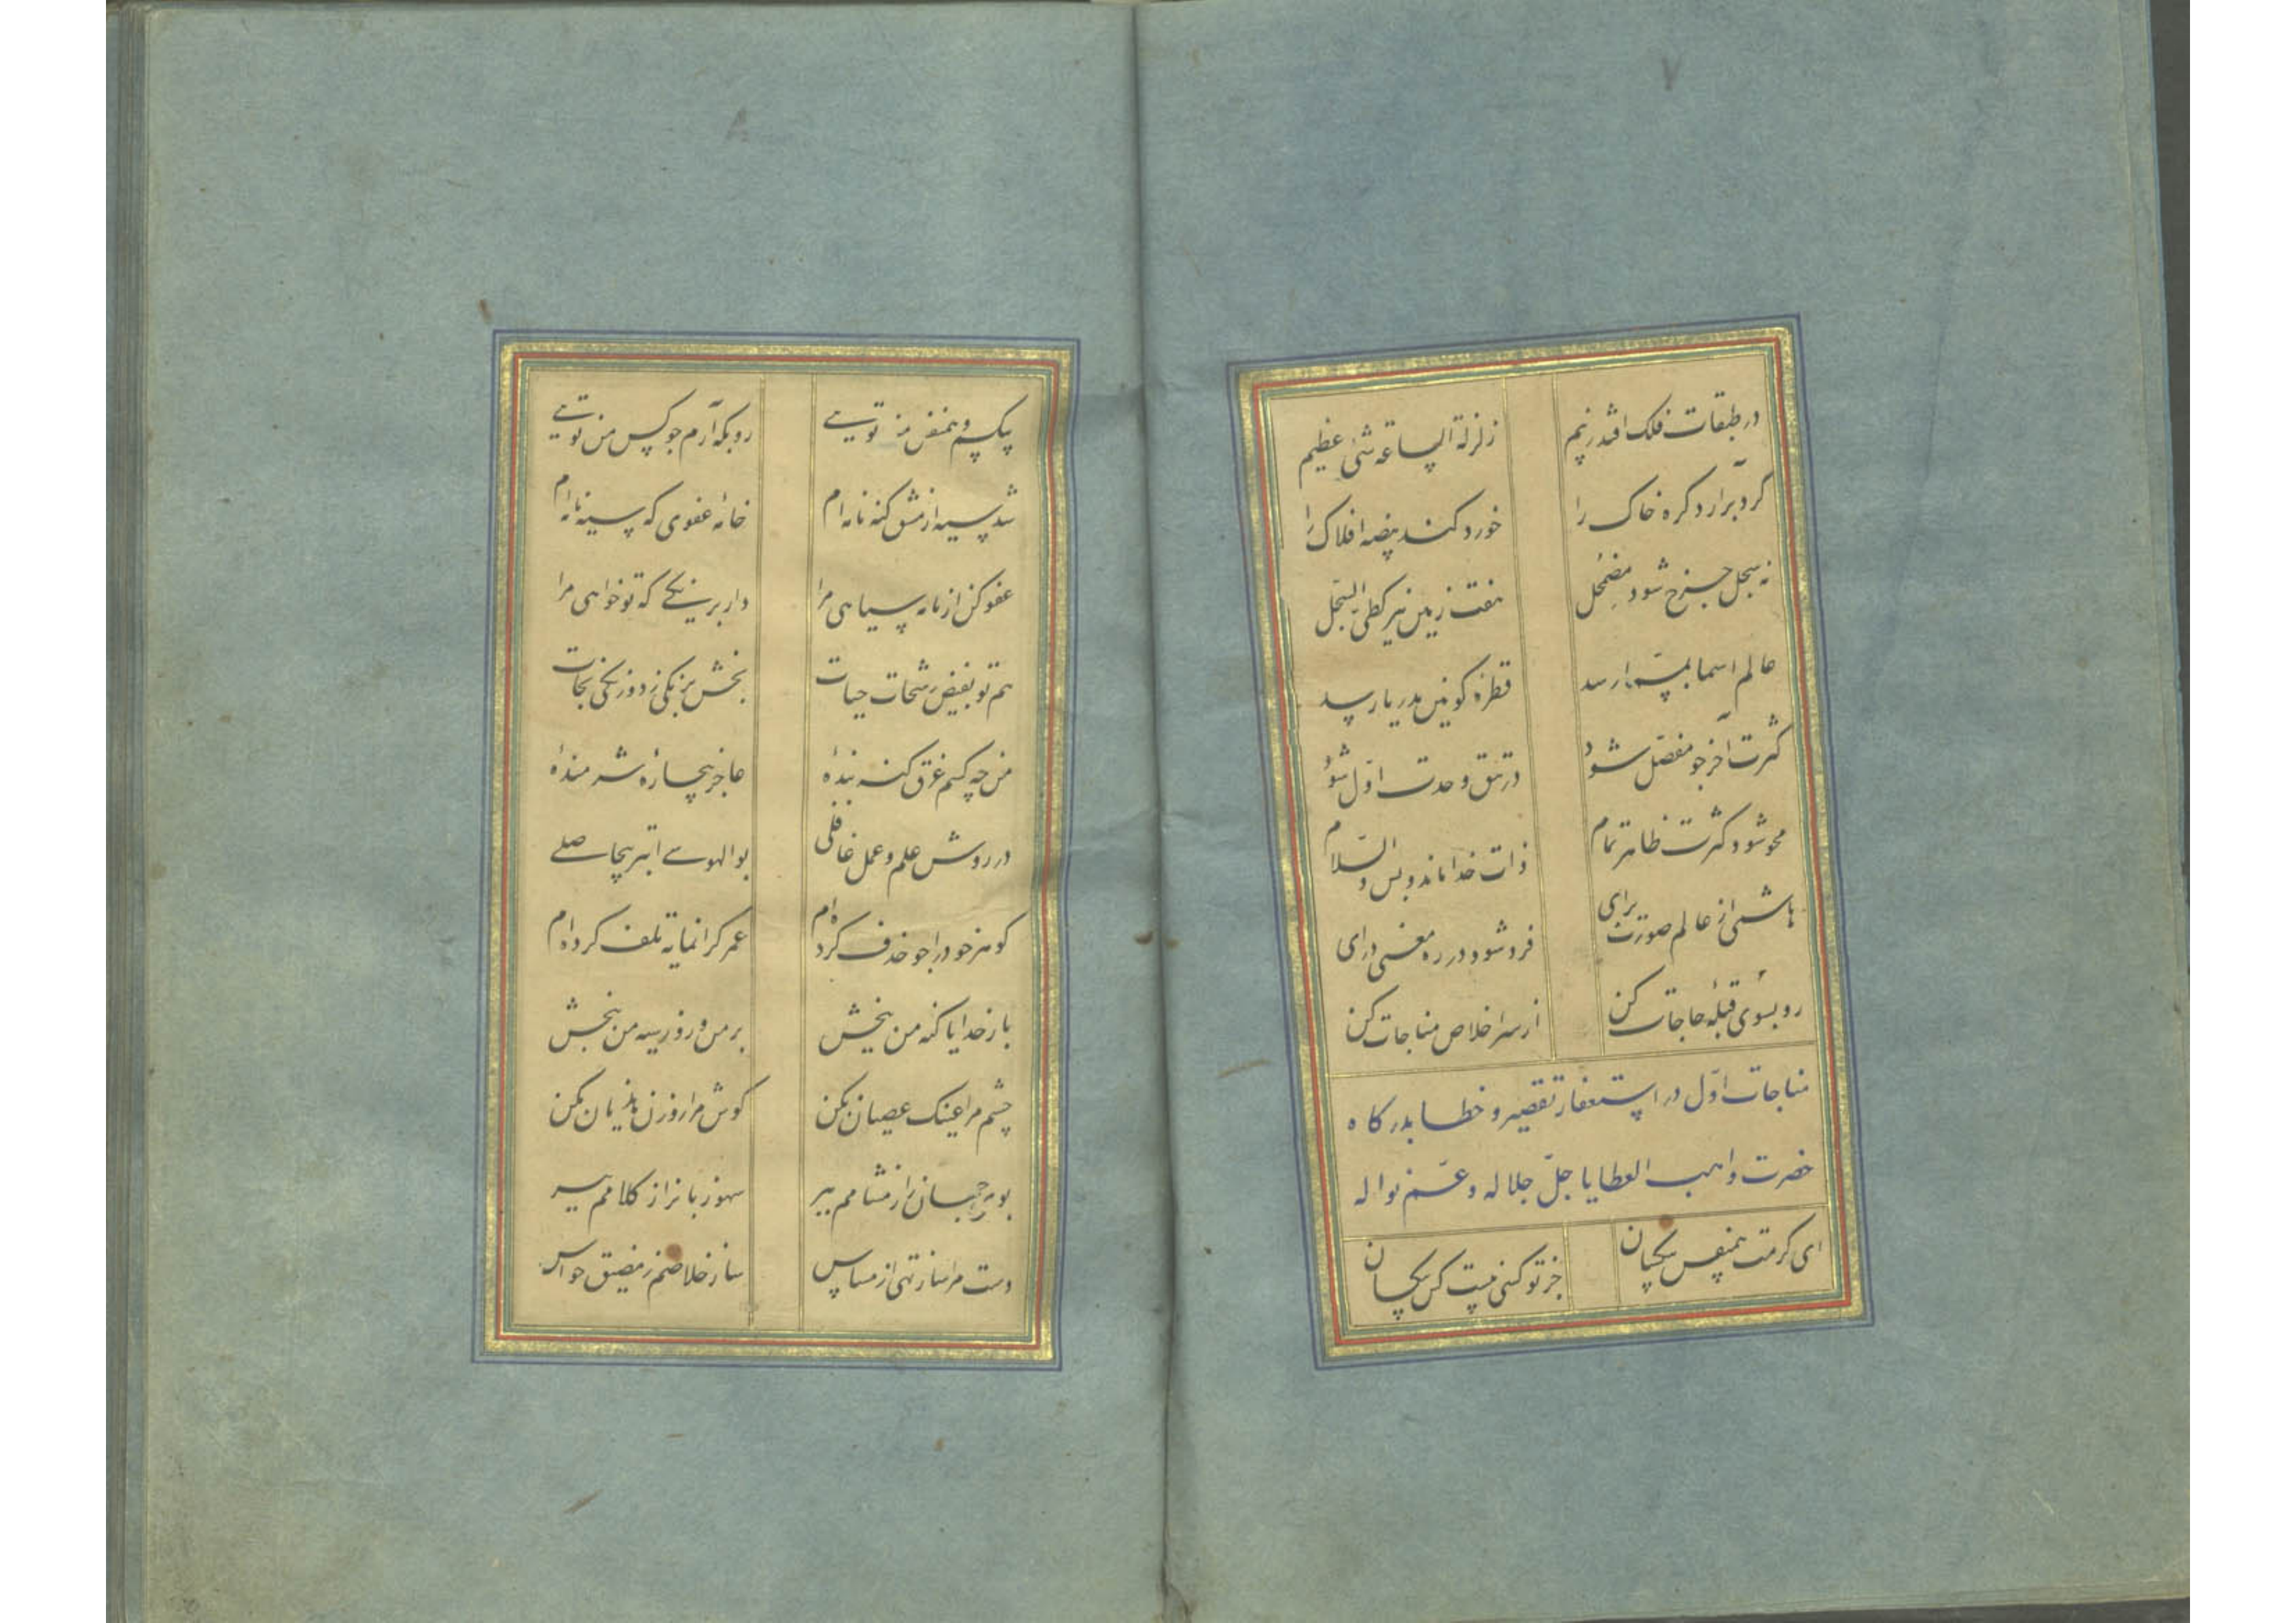 ۷
در طبقات فلک افتد ز بیم زلزلة الساعة شئ عظیم
گرد برآرد کره خاک را خورد کند بیضه افلاک را
نه سجل چرخ شود مضمحل هفت زمین نیز کطی السجل
عالم اسما بمسما رسد قطرهٔ کونین بدریا رسد
کثرت آخر چو مفصل شود در تتق وحدت اول شود
محو شود کثرت ظاهر تمام ذات خدا ماند و بس والسلام
هاشمی از عالم صورت برای فرد شو و در ره معنی درای
رو بسوی قبلهٔ حاجات کن از سر اخلاص مناجات کن
مناجات اول در استغفار تقصیر و خطا بدرگاه
حضرت واهب العطایا جل جلاله و عم نواله
ای کرمت همنفس بیکسان جز تو کسی نیست کس بیکسان
۸
بیکسم و همنفس من تویی رو بکه آرم چو کس من تویی
شد سیه از مشق گنه نامه ام خامهٔ عفوی که سیه نامه ام
عفو کن از نامه سیاهی مرا دار بر اینکه که تو خواهی مرا
هم تو بفیض رشحات حیات بخش ز یکی زدوزنگی نجات
من چه کسم غرق گنه بندهٔ عاجز بیچارهٔ شرمندهٔ
در روش علم و عمل غافلی بوالهوسی ابتر بیحاصلی
گوهر خود را چو خذف کرده ام عمر گرانمایه تلف کرده ام
بار خدایا گنه من ببخش بر من و روز سیه من ببخش
چشم مرا عینک عصیان مکن گوش مرا روزن هذیان مکن
بوی خسان را ز مشامم ببر سهو زبان را ز کلامم ببر
دست مرا ساز تهی از مساس ساز خلاصم ز مضیق حواس